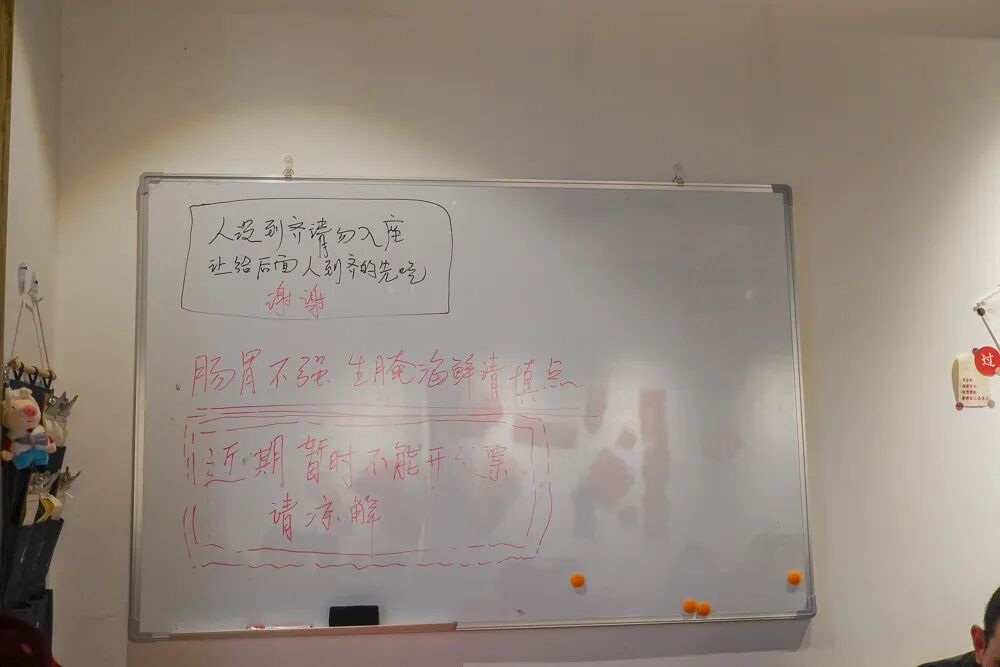 人没到齐请勿入座
让给后面人到齐的先吃
谢谢
肠胃不强 生腌海鲜请慎点
近期暂时不能开发票
请凉解
过